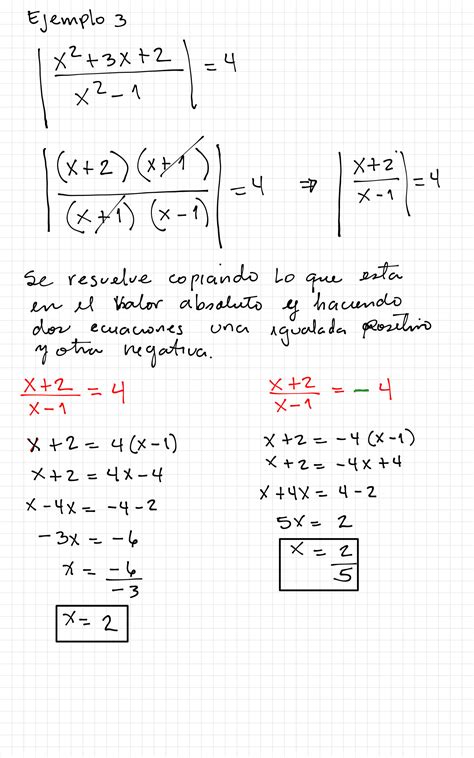 Ejemplo 3
|x²+3x+2 / x²-1| = 4
|(x+2)(x+1) / (x+1)(x-1)| = 4 ⇒ |x+2 / x-1| = 4
Se resuelve copiando lo que esta
en el valor absoluto y haciendo
dos ecuaciones una igualada positivo
y otra negativa.
x+2 / x-1 = 4
x+2 = 4(x-1)
x+2 = 4x-4
x-4x = -4-2
-3x = -6
x = -6 / -3
x = 2
x+2 / x-1 = -4
x+2 = -4(x-1)
x+2 = -4x+4
x+4x = 4-2
5x = 2
x = 2 / 5